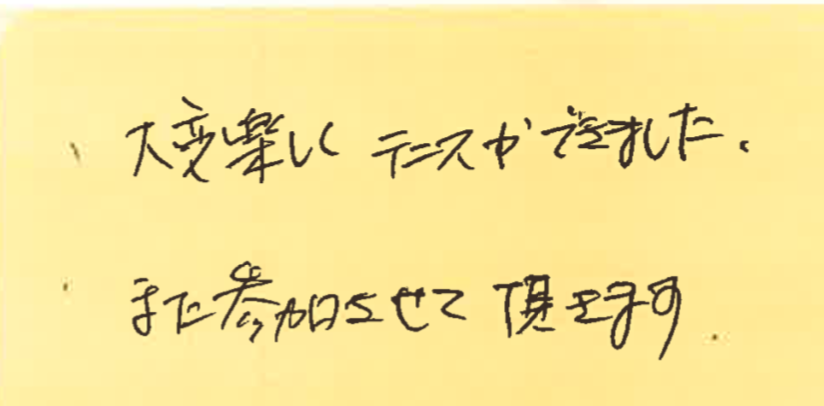 大変楽しくテニスができました.
また参加させて頂きます.